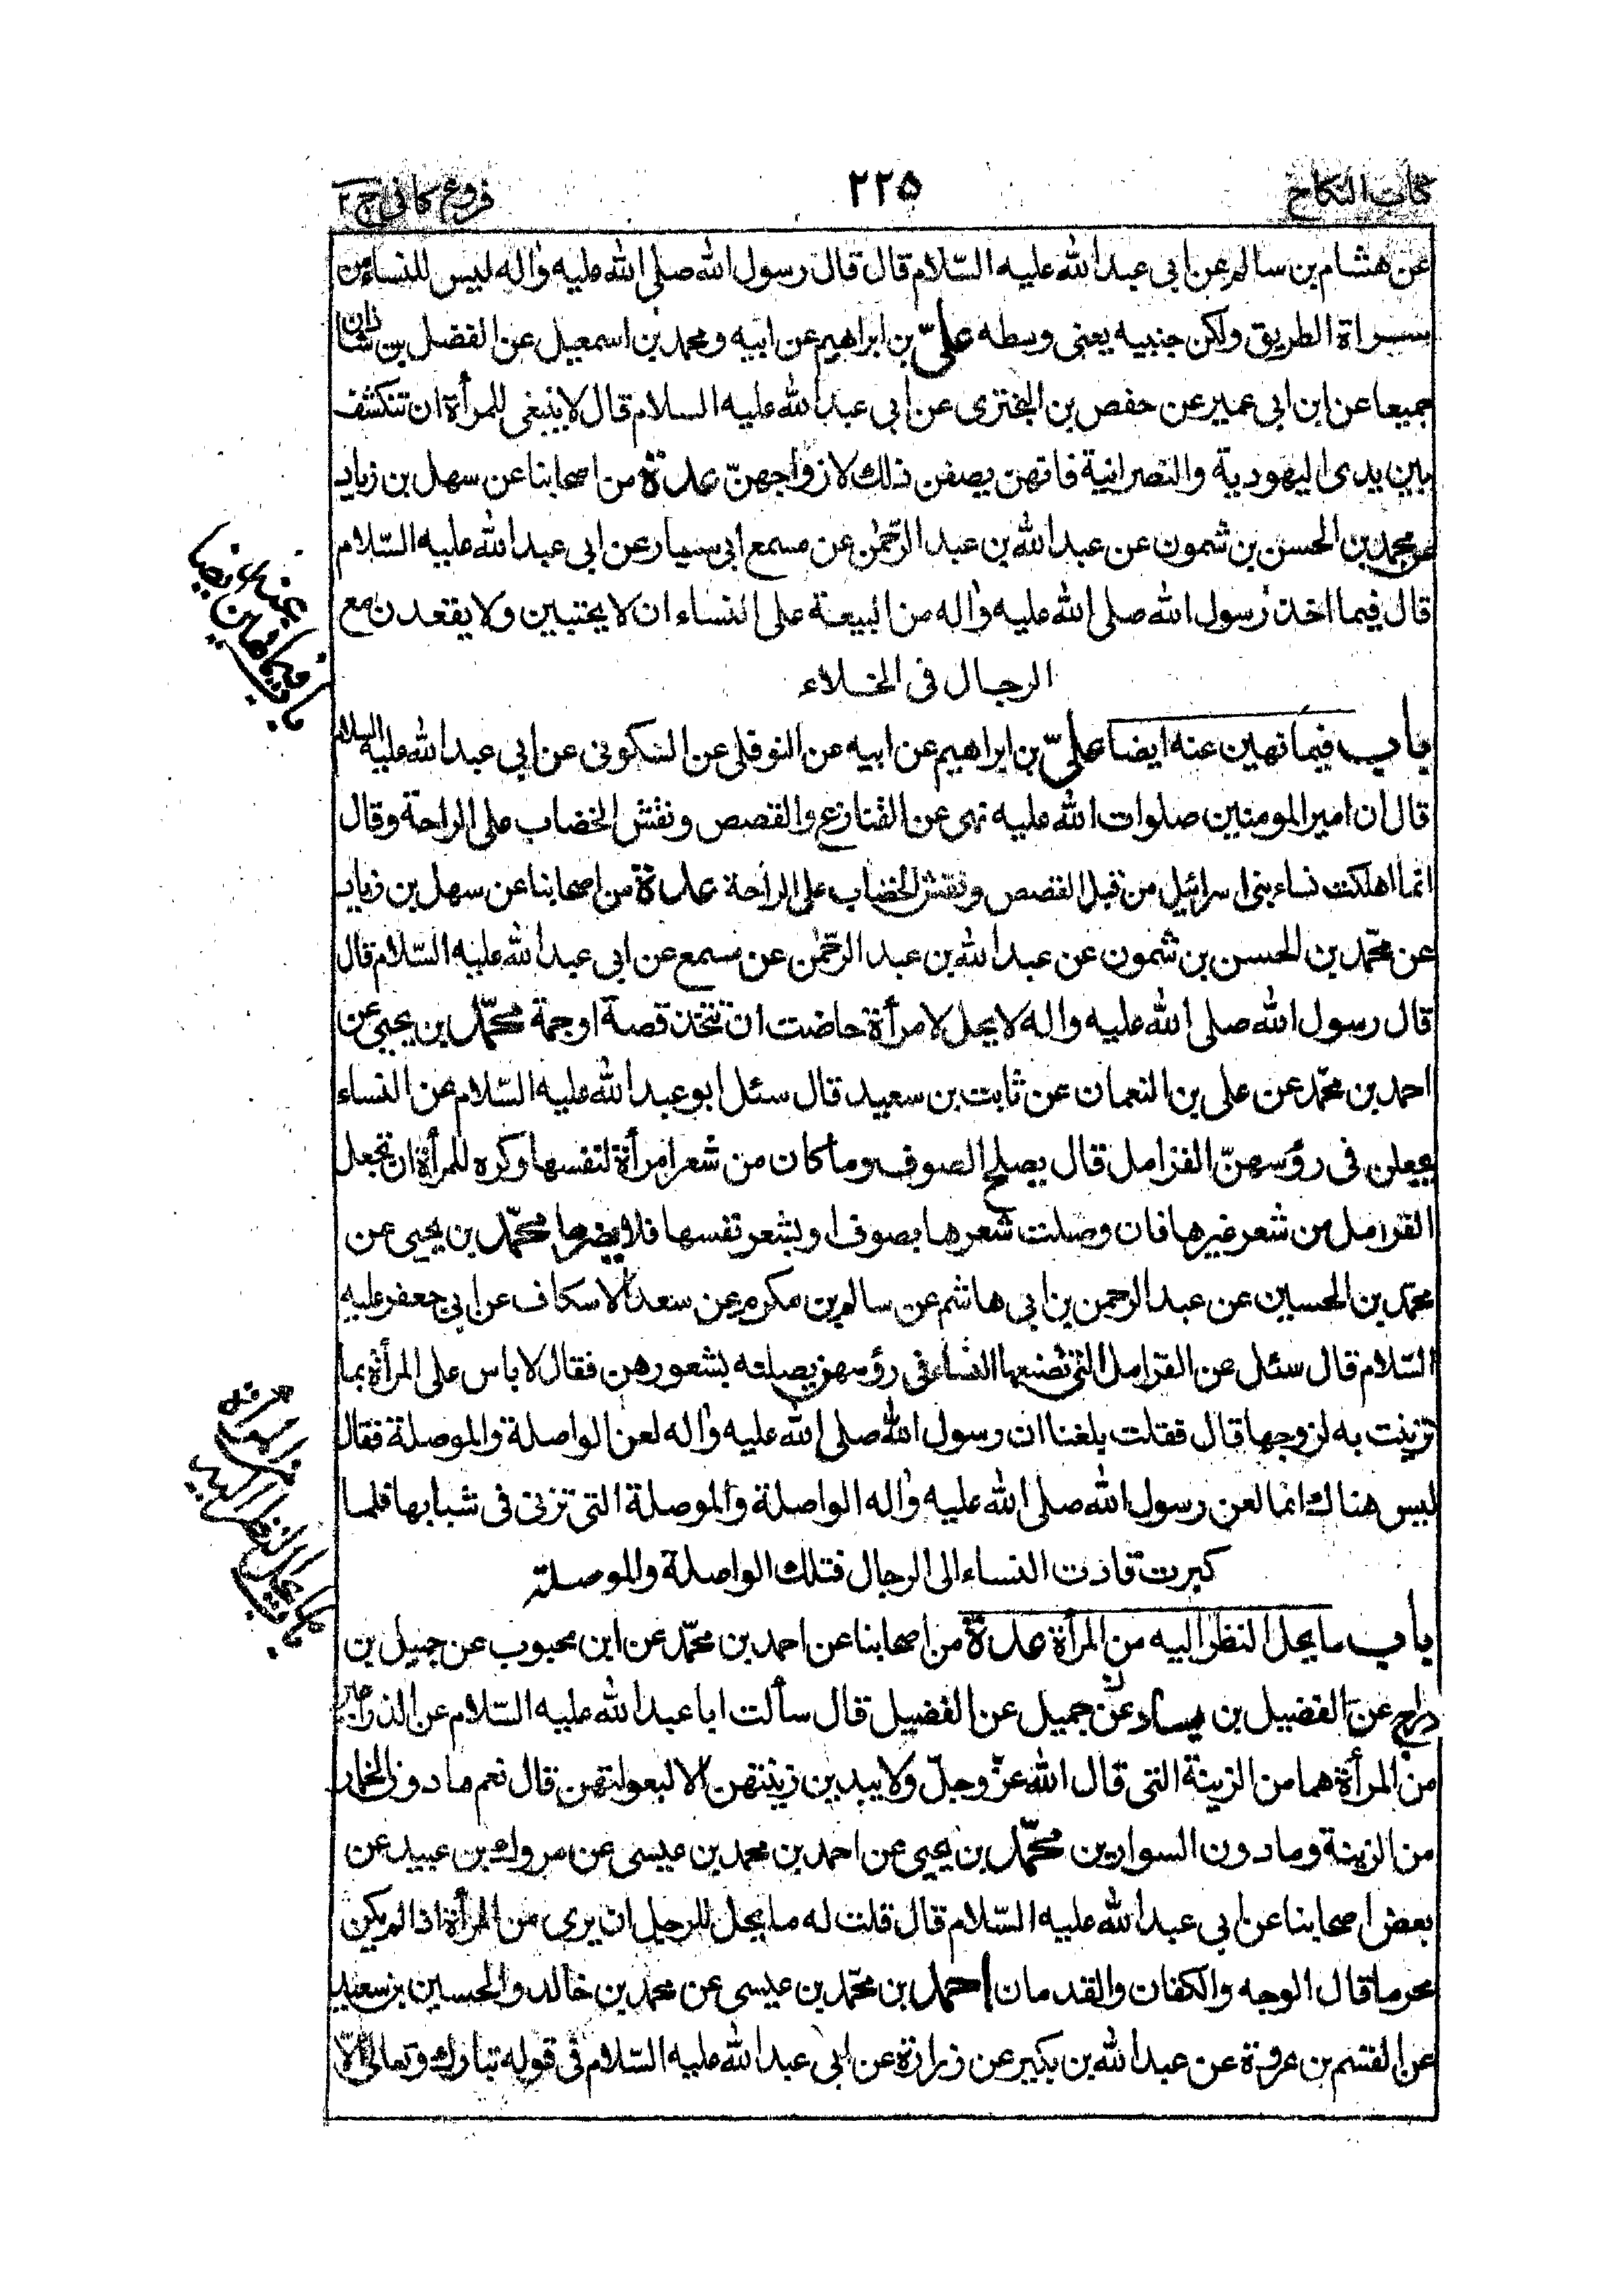 كتاب النكاح
٢٢٥
فروع كافى ج ٢
عن هشام بن سالم عن ابى عبد الله عليه السّلام قال قال رسول الله صلى الله عليه واٰله ليس للنساء من
سراة الطريق ولكن جنبيه يعنى وسطه علىّ بن ابراهيم عن ابيه ومحمد بن اسمعيل عن الفضل بن شاذان
جميعا عن ابن ابى عمير عن حفص بن البخترى عن ابى عبد الله عليه السلام قال لا ينبغى للمرأة ان تنكشف
بين يدى اليهودية والنصرانية فانهن يصفن ذلك لازواجهنّ عدة من اصحابنا عن سهل بن زياد
عن محمد بن الحسن بن شمون عن عبد الله بن عبد الرّحمٰن عن مسمع ابى سيار عن ابى عبد الله عليه السّلام
قال فيما اخذ رسول الله صلى الله عليه واٰله من البيعة على النساء ان لا يحتبين ولا يقعدن مع
الرجال فى الخلاء
باب فيما نهين عنه ايضا علىّ بن ابراهيم عن ابيه عن النوفلى عن السكونى عن ابى عبد الله عليه السلام
قال ان امير المومنين صلوات الله عليه نهى عن القنازع والقصص ونقش الخضاب على الراحة وقال
انما اهلكت نساء بنى اسرائيل من قبل القصص ونقش الخضاب على الراحة عدة من اصحابنا عن سهل بن زياد
عن محمّد بن الحسن بن شمون عن عبد الله بن عبد الرّحمٰن عن مسمع عن ابى عبد الله عليه السّلام قال
قال رسول الله صلى الله عليه واله لا يحل لامرأة حاضت ان تتخذ قصة او جمة محمّد بن يحيى عن
احمد بن محمّد عن على بن النعمان عن ثابت بن سعيد قال سئل ابو عبد الله عليه السّلام عن النساء
يجعلن فى رؤسهنّ القرامل قال يصلح الصوف وما كان من شعر امرأة لنفسها وكره للمرأة ان تجعل
القرامل من شعر غيرها فان وصلت شعرها بصوف او بشعر نفسها فلا يضرها محمّد بن يحيى عن
محمّد بن الحسين عن عبد الرحمن بن ابى هاشم عن سالم بن مكرم عن سعد الاسكاف عن ابى جعفر عليه
السّلام قال سئل عن القرامل التى تضعها النساء فى رؤسهن يصلنه بشعورهن فقال لا باس على المرأة بما
تزينت به لزوجها قال فقلت بلغنا ان رسول الله صلى الله عليه واٰله لعن الواصلة والموصلة فقال
ليس هناك انما لعن رسول الله صلى الله عليه واٰله الواصلة والموصلة التى تزنى فى شبابها فلما
كبرت قادت النساء الى الرجال فتلك الواصلة والموصلة
باب ما يحل النظر اليه من المرأة عدة من اصحابنا عن احمد بن محمّد عن ابن محبوب عن جميل بن
دراج عن الفضيل بن يسار عن جميل عن الفضيل قال سألت ابا عبد الله عليه السّلام عن الذراعين
من المرأة هما من الزينة التى قال الله عزّ وجلّ ولا يبدين زينتهن الا لبعولتهن قال نعم ما دون الخمار
من الزينة وما دون السوارين محمّد بن يحيى عن احمد بن محمد بن عيسى عن مروك بن عبيد عن
بعض اصحابنا عن ابى عبد الله عليه السّلام قال قلت له ما يحل للرجل ان يرى من المرأة اذا لم يكن
محرما قال الوجه والكفان والقدمان احمد بن محمّد بن عيسى عن محمد بن خالد والحسين بن سعيد
عن القسم بن عروة عن عبد الله بن بكير عن زرارة عن ابى عبد الله عليه السّلام فى قوله تبارك وتعالى الّا
باب فيما نهين
عنه ايضا
باب ما يحل النظر اليه
من المرأة